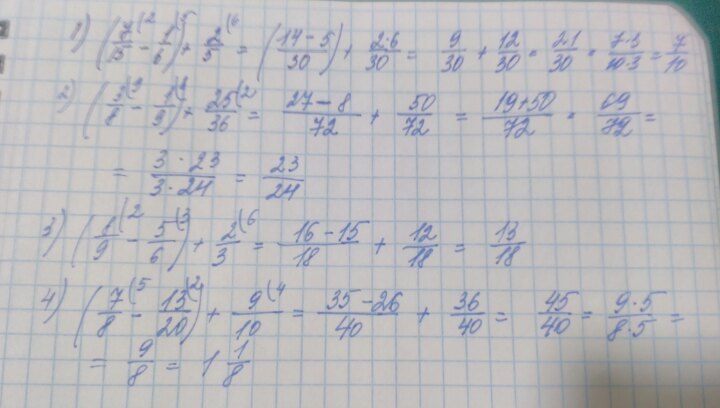 1) (7/15^(2 - 1/6^(5) + 2/5^(6 = (14-5/30) + 2·6/30 = 9/30 + 12/30 = 21/30 = 7·3/10·3 = 7/10
2) (3/8^(9 - 1/9^(8) + 25/36^(2 = 27-8/72 + 50/72 = 19+50/72 = 69/72 =
= 3·23/3·24 = 23/24
3) (1/9^(2 - 5/6^(3) + 2/3^(6 = 16-15/18 + 12/18 = 13/18
4) (7/8^(5 - 13/20^(2) + 9/10^(4 = 35-26/40 + 36/40 = 45/40 = 9·5/8·5 =
= 9/8 = 1 1/8